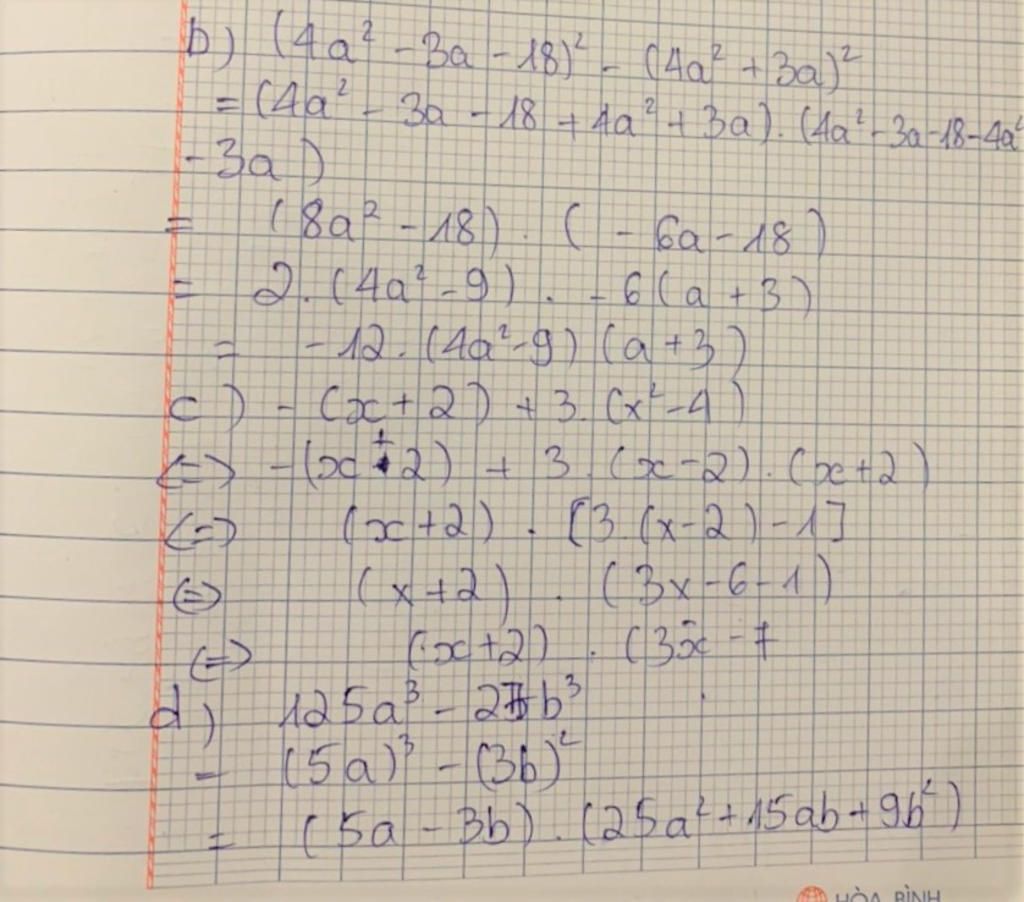 b) (4a² - 3a - 18)² - (4a² + 3a)²
= (4a² - 3a - 18 + 4a² + 3a) . (4a² - 3a - 18 - 4a²
- 3a)
= (8a² - 18) . ( - 6a - 18)
= 2 . (4a² - 9) . - 6(a + 3)
= - 12 . (4a² - 9) (a + 3)
c) - (x + 2) + 3 . (x² - 4)
<=> - (x + 2) + 3 . (x - 2) . (x + 2)
<=> (x + 2) . [3 . (x - 2) - 1]
<=> (x + 2) . (3x - 6 - 1)
<=> (x + 2) . (3x - 7
d) 125a³ - 27b³
= (5a)³ - (3b)²
= (5a - 3b) . (25a² + 15ab + 9b²)
HÒA BÌNH